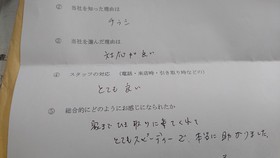 ② 当社を知った理由は
チラシ
③ 当社を選んだ理由は
対応が良い
④ スタッフの対応 (電話・来店時・引き取り時などの)
とても 良い
⑤ 総合的にどのようにお感じになられたか
家まで ひき取りに来てくれて
とてもスピーディーで、本当に助かりました。